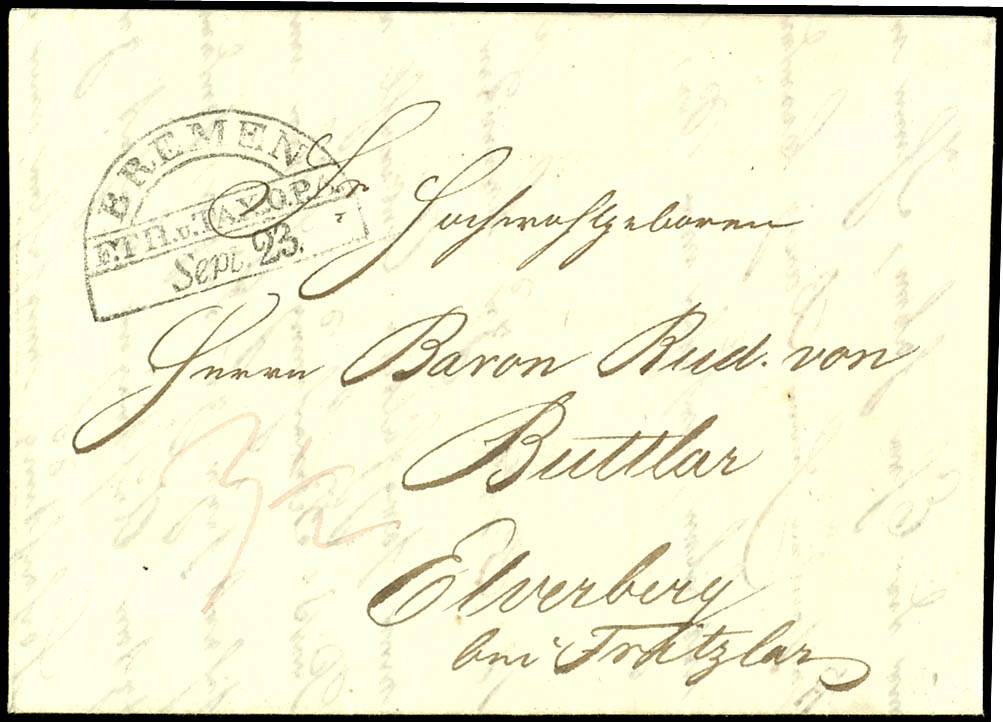 BREMEN
F. TH. u. TAX. O.P.A.
Sept. 23.
Sr Hochwohlgeboren
Herrn Baron Rud. von
Buttlar
Elverberg
bei Fritzlar
3½